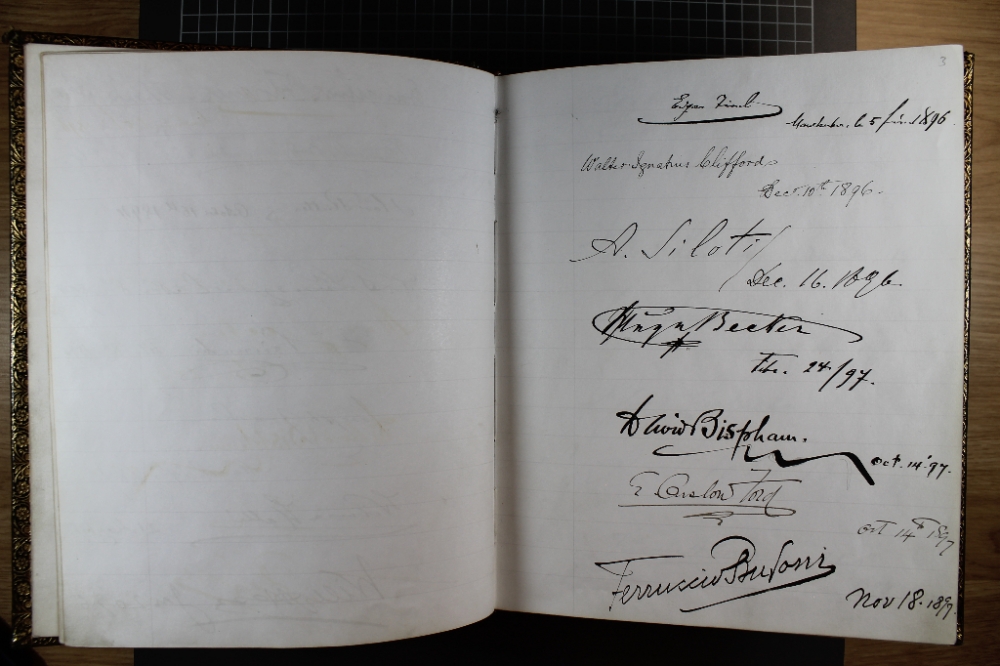 3
Edgar Tinel
le 5 1896
Walter Ignatius Clifford
Decr. 10th 1896.
A. Siloti
Dec. 16. 1896.
Hugo Becker
24/97.
David Bispham.
Oct. 14. '97.
E. Onslow Ford
Oct 14th 1897
Ferruccio Busoni
Nov 18. 1897.